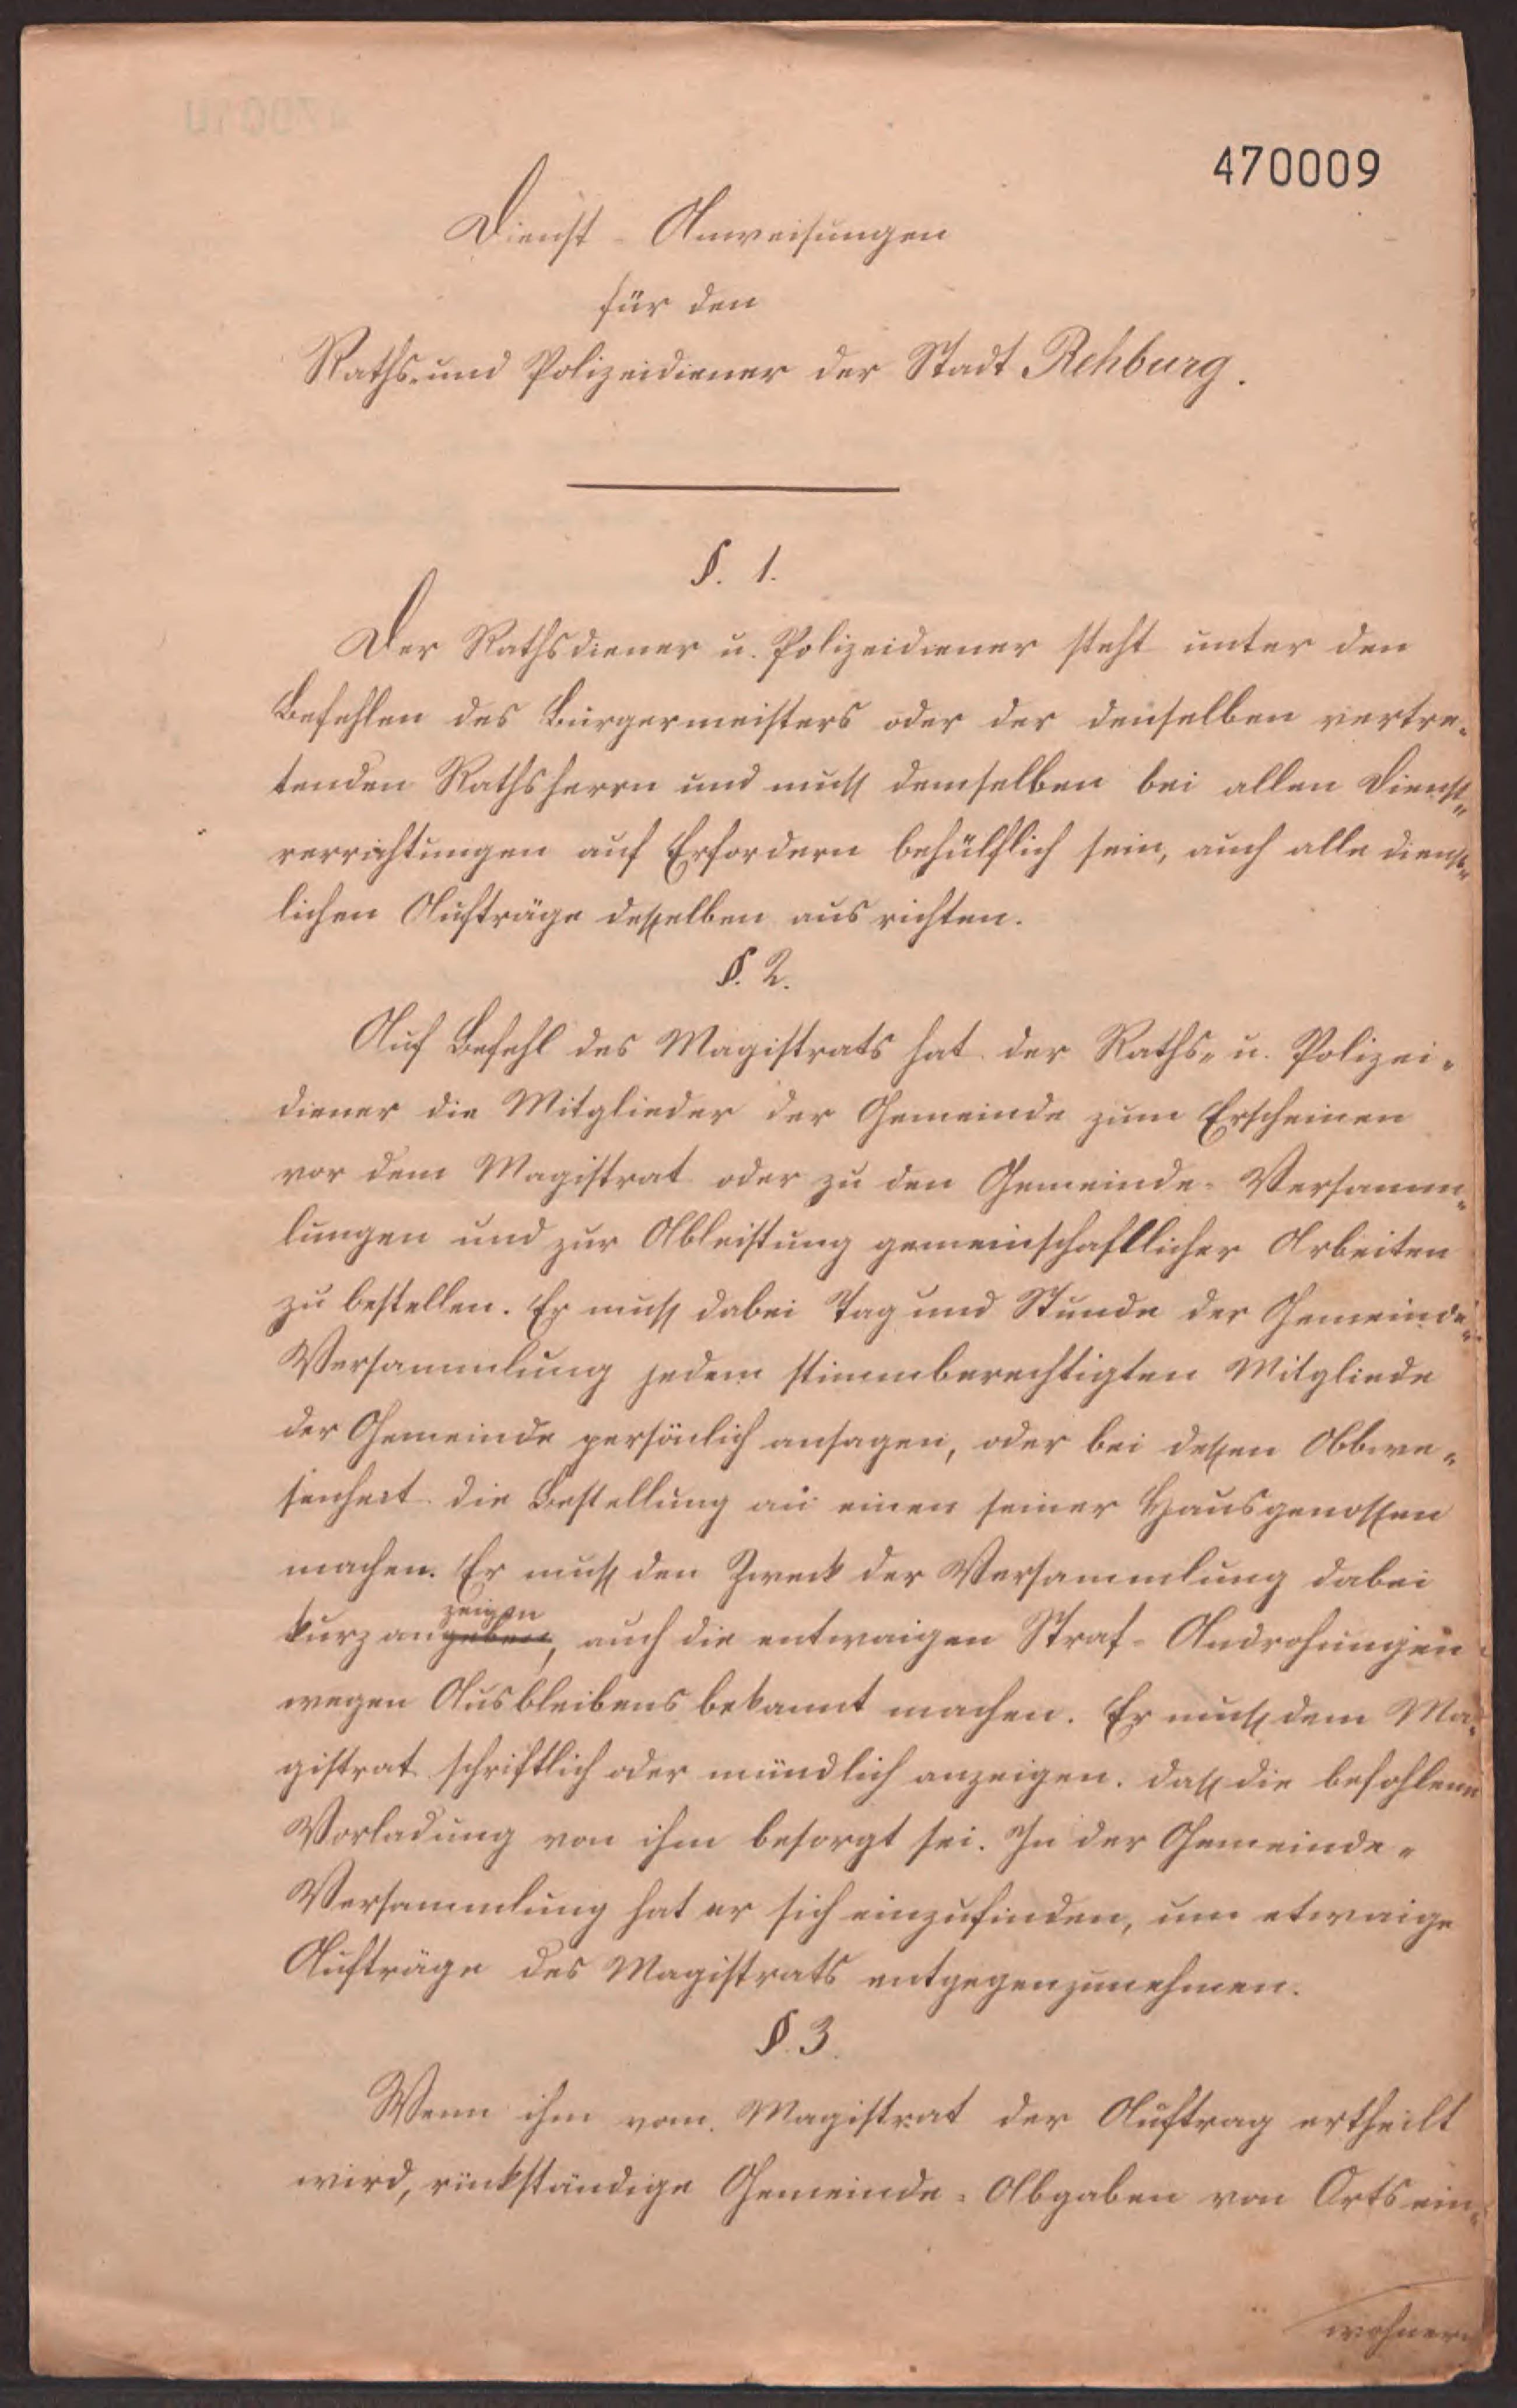 470009
Dienst-Anweisungen
für den
Raths- und Polizeidiener der Stadt Rehburg.
§. 1.
Der Rathsdiener u. Polizeidiener steht unter den
Befehlen des Bürgermeisters oder der denselben vertre-
tenden Rathsherrn und muß demselben bei allen Dienst-
verrichtungen auf Erfordern behülflich sein, auch alle dienst-
lichen Aufträge desselben ausrichten.
§. 2.
Auf Befehl des Magistrats hat der Raths- u. Polizei-
diener die Mitglieder der Gemeinde zum Erscheinen
vor dem Magistrat oder zu den Gemeinde-Versamm-
lungen und zur Ableistung gemeinschaftlicher Arbeiten
zu bestellen. Er muß dabei Tag und Stunde der Gemeinde-
Versammlung jedem stimmberechtigten Mitgliede
der Gemeinde persönlich ansagen, oder bei dessen Abwe-
senheit die Bestellung an einen seiner Hausgenossen
machen. Er muß den Zweck der Versammlung dabei
zeigen
kurz angeben, auch die entwaigen Straf-Androhungen
wegen Ausbleibens bekannt machen. Er muß dem Ma-
gistrat schriftlich oder mündlich anzeigen, daß die befohlene
Vorladung von ihm besorgt sei. In der Gemeinde-
Versammlung hat er sich einzufinden, um etwaige
Aufträge des Magistrats entgegenzunehmen.
§. 3.
Wenn ihm vom Magistrat der Auftrag ertheilt
wird, rückständige Gemeinde-Abgaben von Ortsein-
wohnern